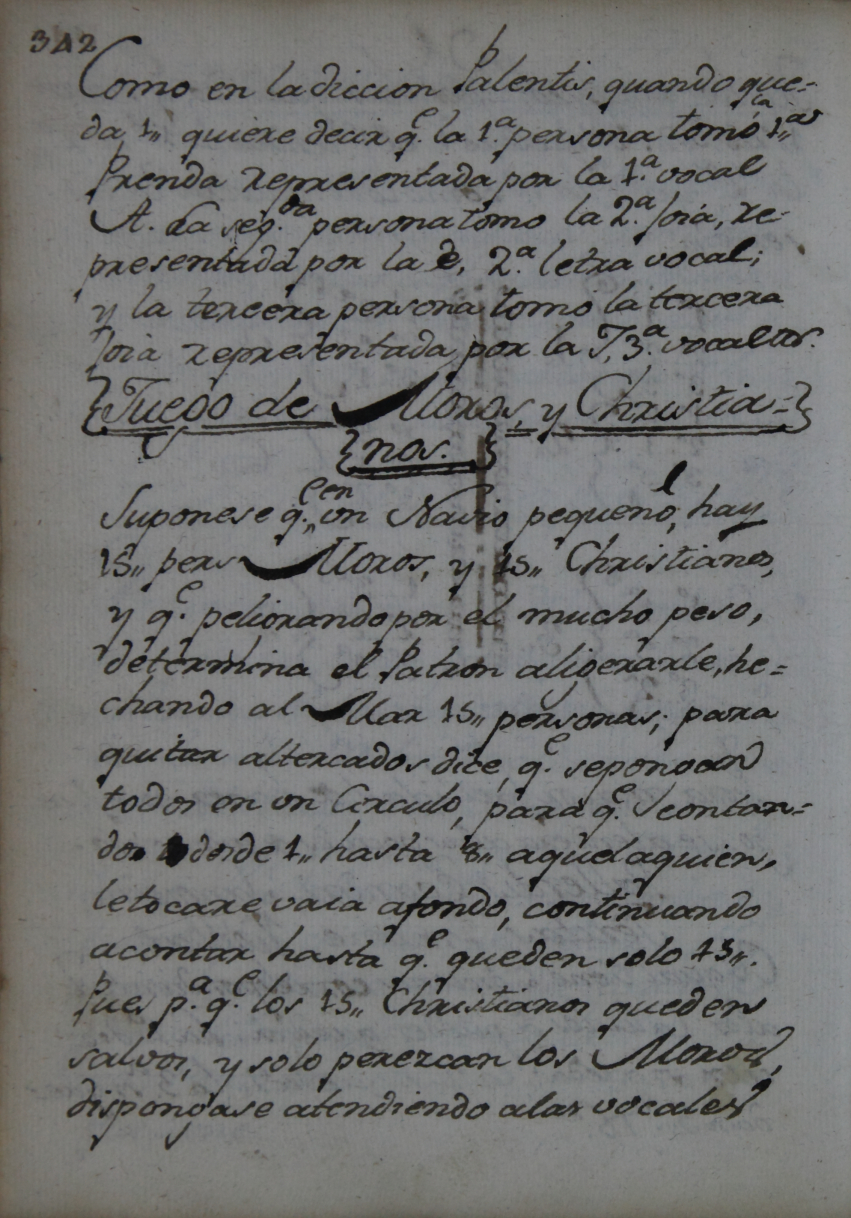 342
Como en la diccion Palentis, quando que=
da, 1,, quiere decir q.e la 1.a persona tomó la 1,,a
Prenda representada por la 1.a vocal
A. La seg.da persona tomo la 2.a Joia, re-
presentada por la e, 2.a letra vocal;
y la tercera persona tomo la tercera
Joia representada por la I, 3.a vocal &.
{Juego de Moros, y Christia=}
{nos.}
Suponese q.e en un Navio pequeño, hay
15,, pers Moros, y 15,, Christianos,
y q.e peligrando por el mucho peso,
determina el Patron aligerarle, he=
chando al Mar 15,, personas; para
quitar altercados dice, q.e se pongan
todos en un Circulo, para q.e contan=
do desde 1,, hasta 8,, aquel aquien,
letocare vaia afondo, continuando
acontar hasta q.e queden solo 15,,.
Pues p.a q.e los 15,, Christianos queden
salvos, y solo perezcan los Moros,
dispongase atendiendo alas vocales